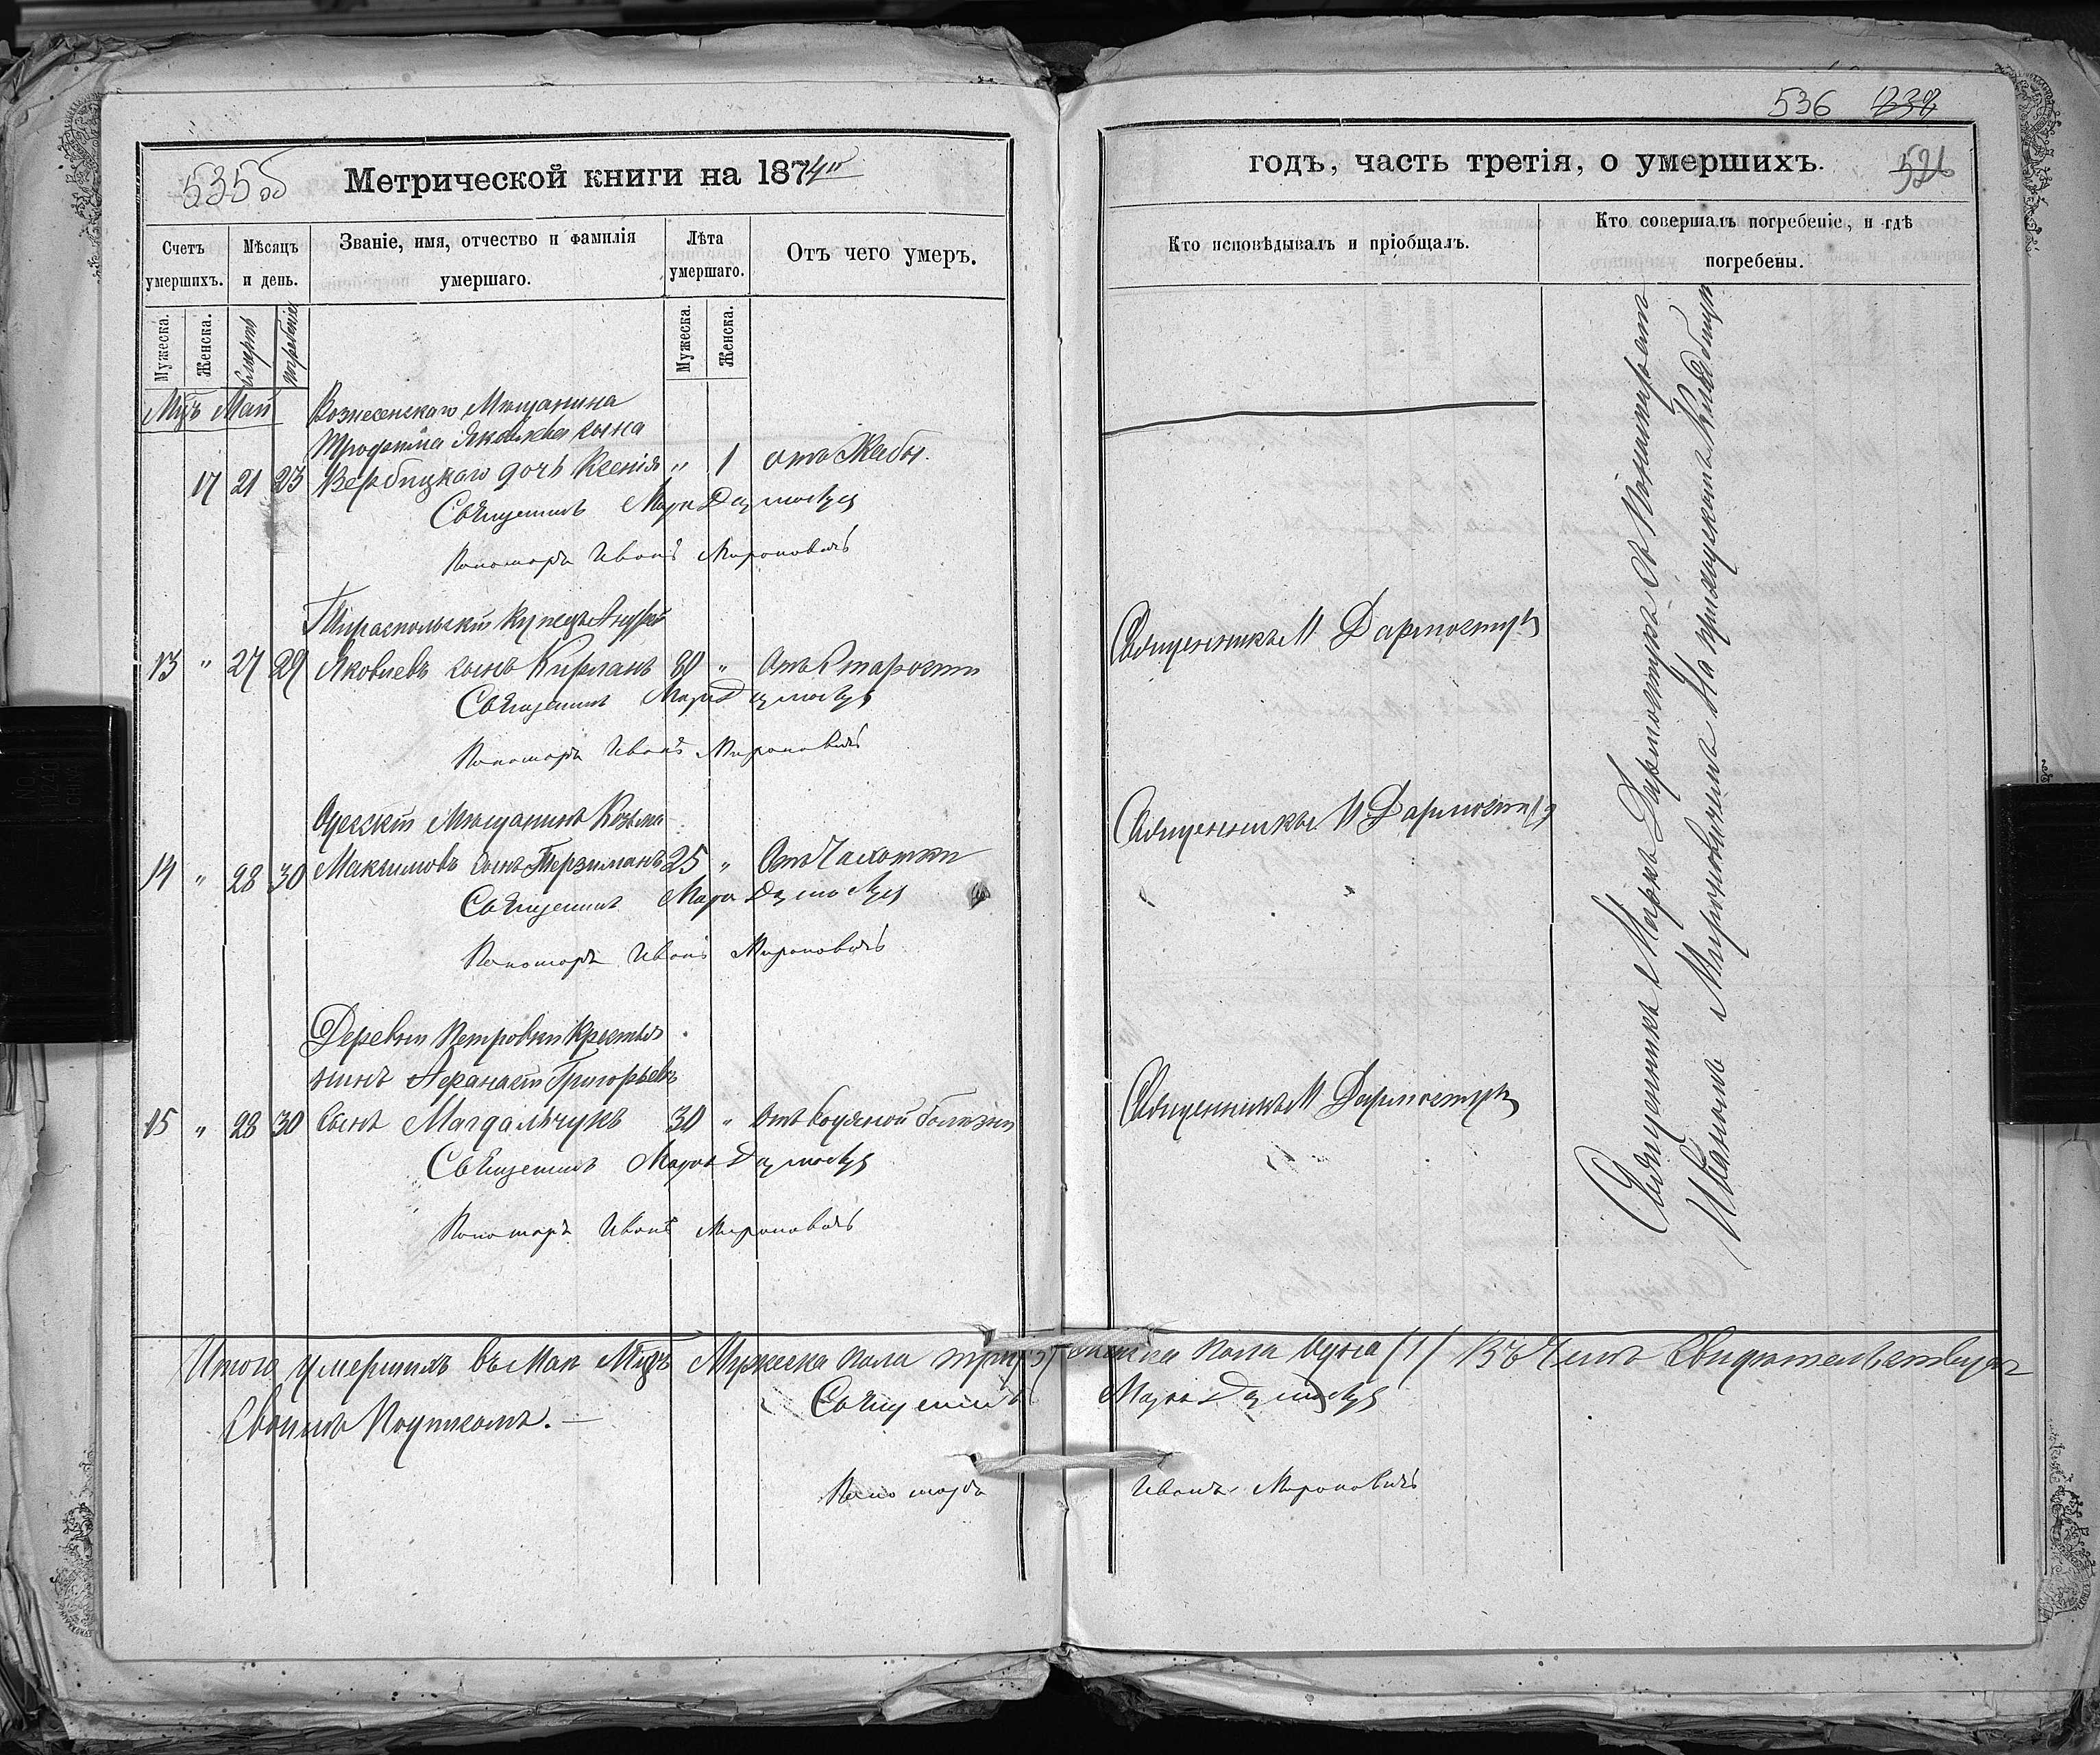 535об
Метрической книги на 1874й
Счетъ умершихъ.
Мѣсяцъ и день.
Званіе, имя, отчество и фамилія умершаго.
Лѣта умершаго.
Отъ чего умеръ.
Мужеска.
Женска.
Смерть
погребенія
Мужеска.
Женска.
Мцъ Май
Вознесенскаго Мѣщанина
Яковлева сына
17 21 23 Вербицкаго дочь Ксенія " 1 отъ Жабы.
Священникъ Марк
Пономарь Иванъ Мироновичъ
Тираспольскій купецъ Андрей
13 " 27 29 Яковлевъ сынъ Кирланъ 80 " Отъ Старости
Священникъ Марк
Пономарь Иванъ Мироновичъ
Одесскій Мѣщанинъ Козьма
14 " 28 30 Максимовъ сынъ Терзиманъ 25 " Отъ Чахотки
Священникъ Марк
Пономарь Иванъ Мироновичъ
Деревни Петровки Крестья
нинъ Афанасій Григорьевъ
15 " 28 30 Сынъ Магдальчукъ 30 " Отъ водяной болѣзни
Священникъ Марк
Пономарь Иванъ Мироновичъ
Итого умершихъ въ Маѣ Мцѣ Мужеска пола три /3/
Своимъ Подписомъ. —
Священникъ
Пономарь
536 538
годъ, часть третія, о умершихъ.
526
Кто исповѣдывалъ и пріобщалъ.
Кто совершалъ погребеніе, и гдѣ
погребены.
Священникъ М Дармостукъ
Священникъ М Дармостукъ
Священникъ М Дармостукъ
Священникъ Маркъ Дармостукъ съ Пономаремъ
Иваномъ Мироновичемъ На приходскомъ Кладбищѣ
женска пола одна /1/ Въ Чемъ Свидѣтельствуемъ
Марк
Иванъ Мироновичъ